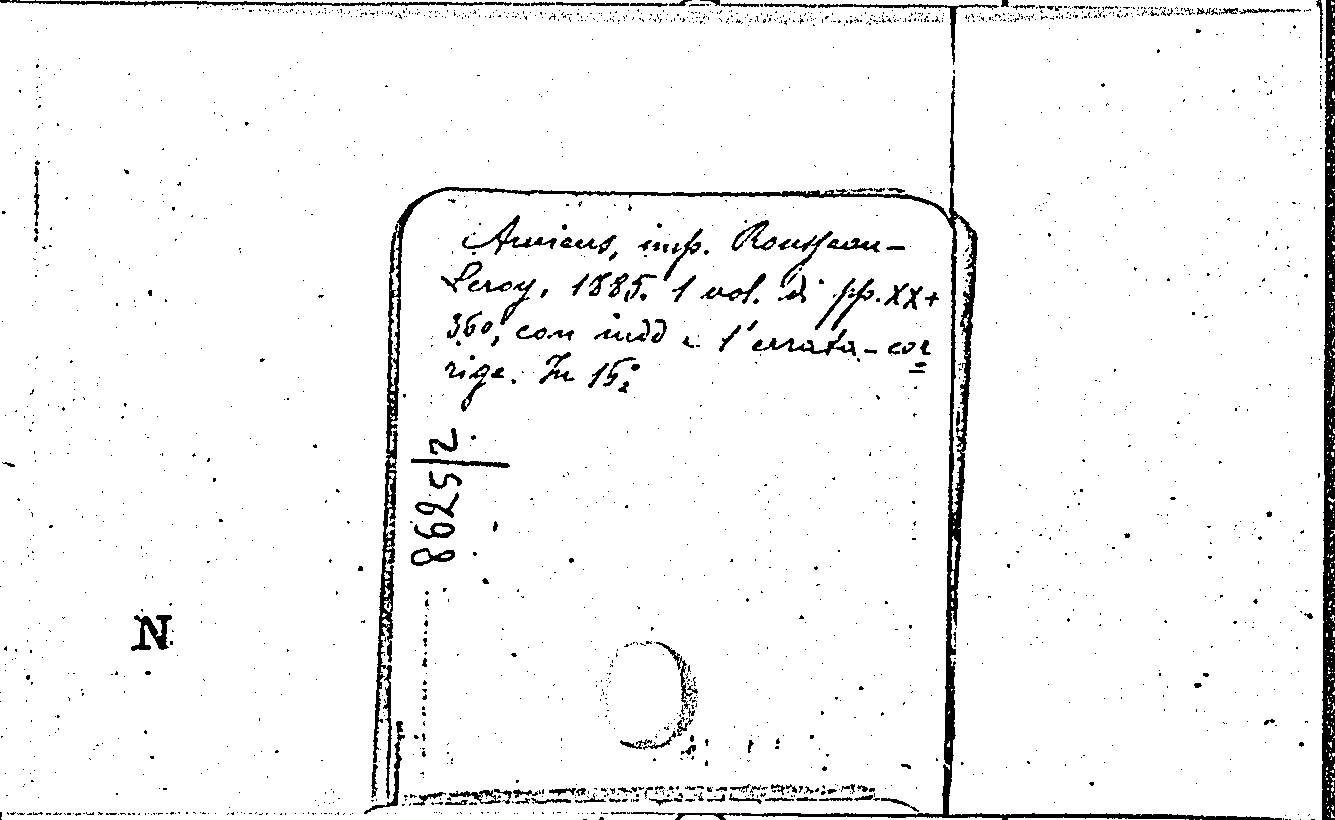 Amiens, imp. Rousseau-
Leroy, 1885. 1 vol. di pp. XX+
360, con indd e l'errata-cor
rige. In 15º
8625/2
N